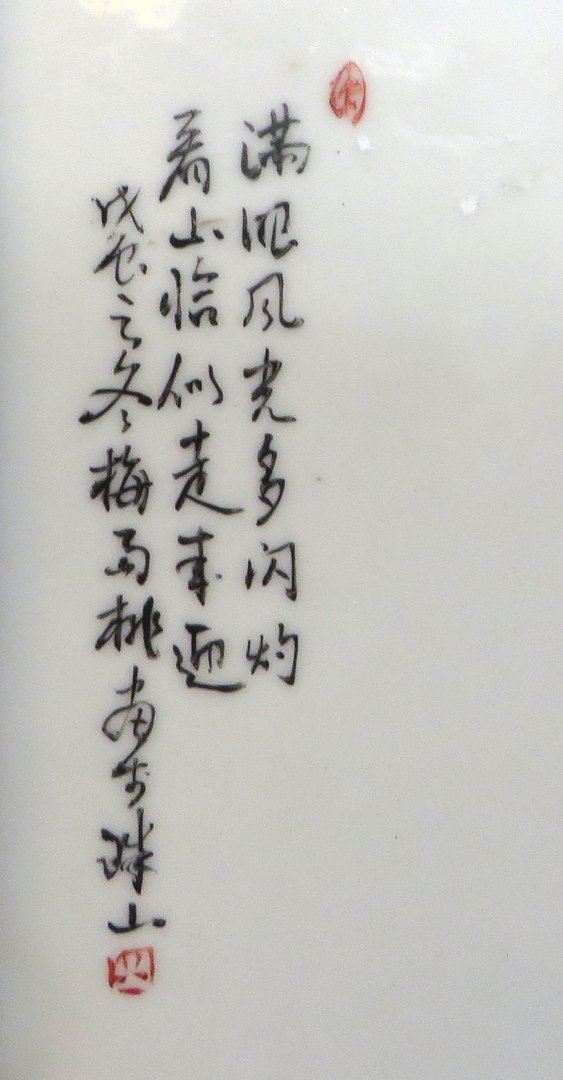 满眼风光多闪灼
看山恰似走来迎
戊之冬梅雨桃画于珠山